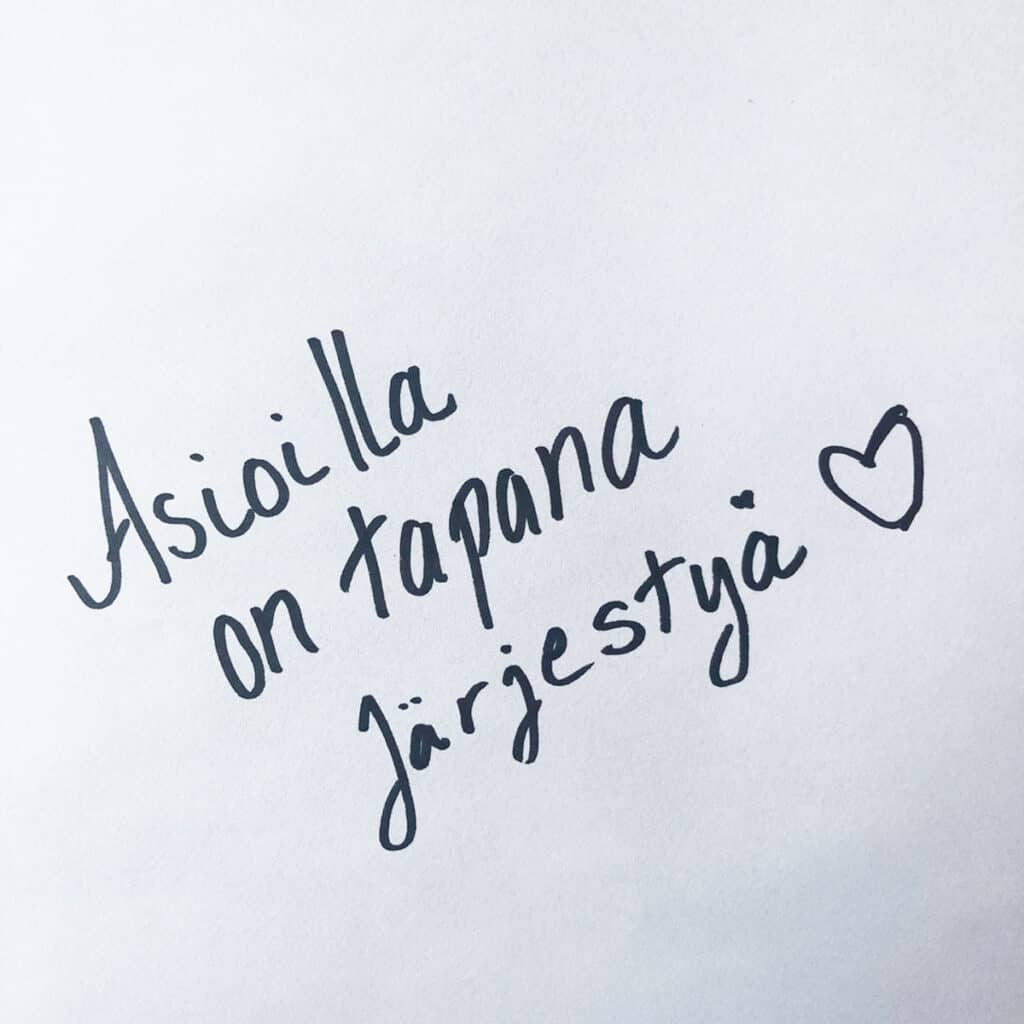 Asioilla
on tapana
Järjestyä ♡